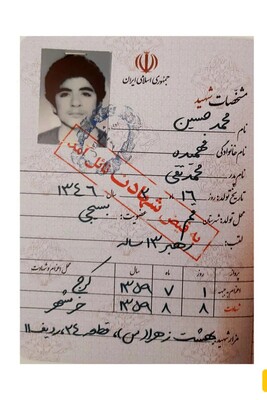 جمهوری اسلامی ایران
مشخصات شهید
نام محمد حسین
نام خانوادگی فهمیده
نام پدر محمد تقی
تاریخ تولد: روز ۱۶ ماه ۲ سال ۱۳۴۶
محل تولد: شهرستان قم عضویت: بسیجی
لقب: رهبر ۱۳ ساله
با فیض شهادت نائل آمد
روز ماه سال محل اعزام و شهادت
۱ ۷ ۱۳۵۹ کرج
شهادت ۸ ۸ ۱۳۵۹ خرمشهر
مزار شهید: بهشت زهرا (س)، قطعه ۲۴، ردیف ۱۱